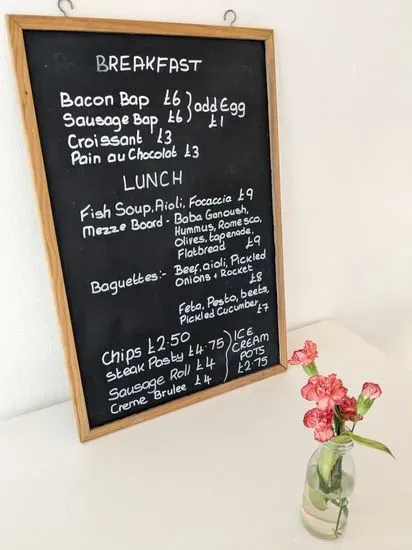 BREAKFAST
Bacon Bap £6 } add Egg
Sausage Bap £6 } £1
Croissant £3
Pain au Chocolat £3
LUNCH
Fish Soup, Aioli, Focaccia £9
Mezze Board - Baba Ganoush,
Hummus, Romesco,
Olives, tapenade,
Flatbread £9
Baguettes:- Beef, aioli, Pickled
Onions + Rocket
£8
Feta, Pesto, beets,
Pickled Cucumber £7
Chips £2.50
Steak Pasty £4.75
Sausage Roll £4
Creme Brulee £4
ICE
CREAM
POTS
£2.75